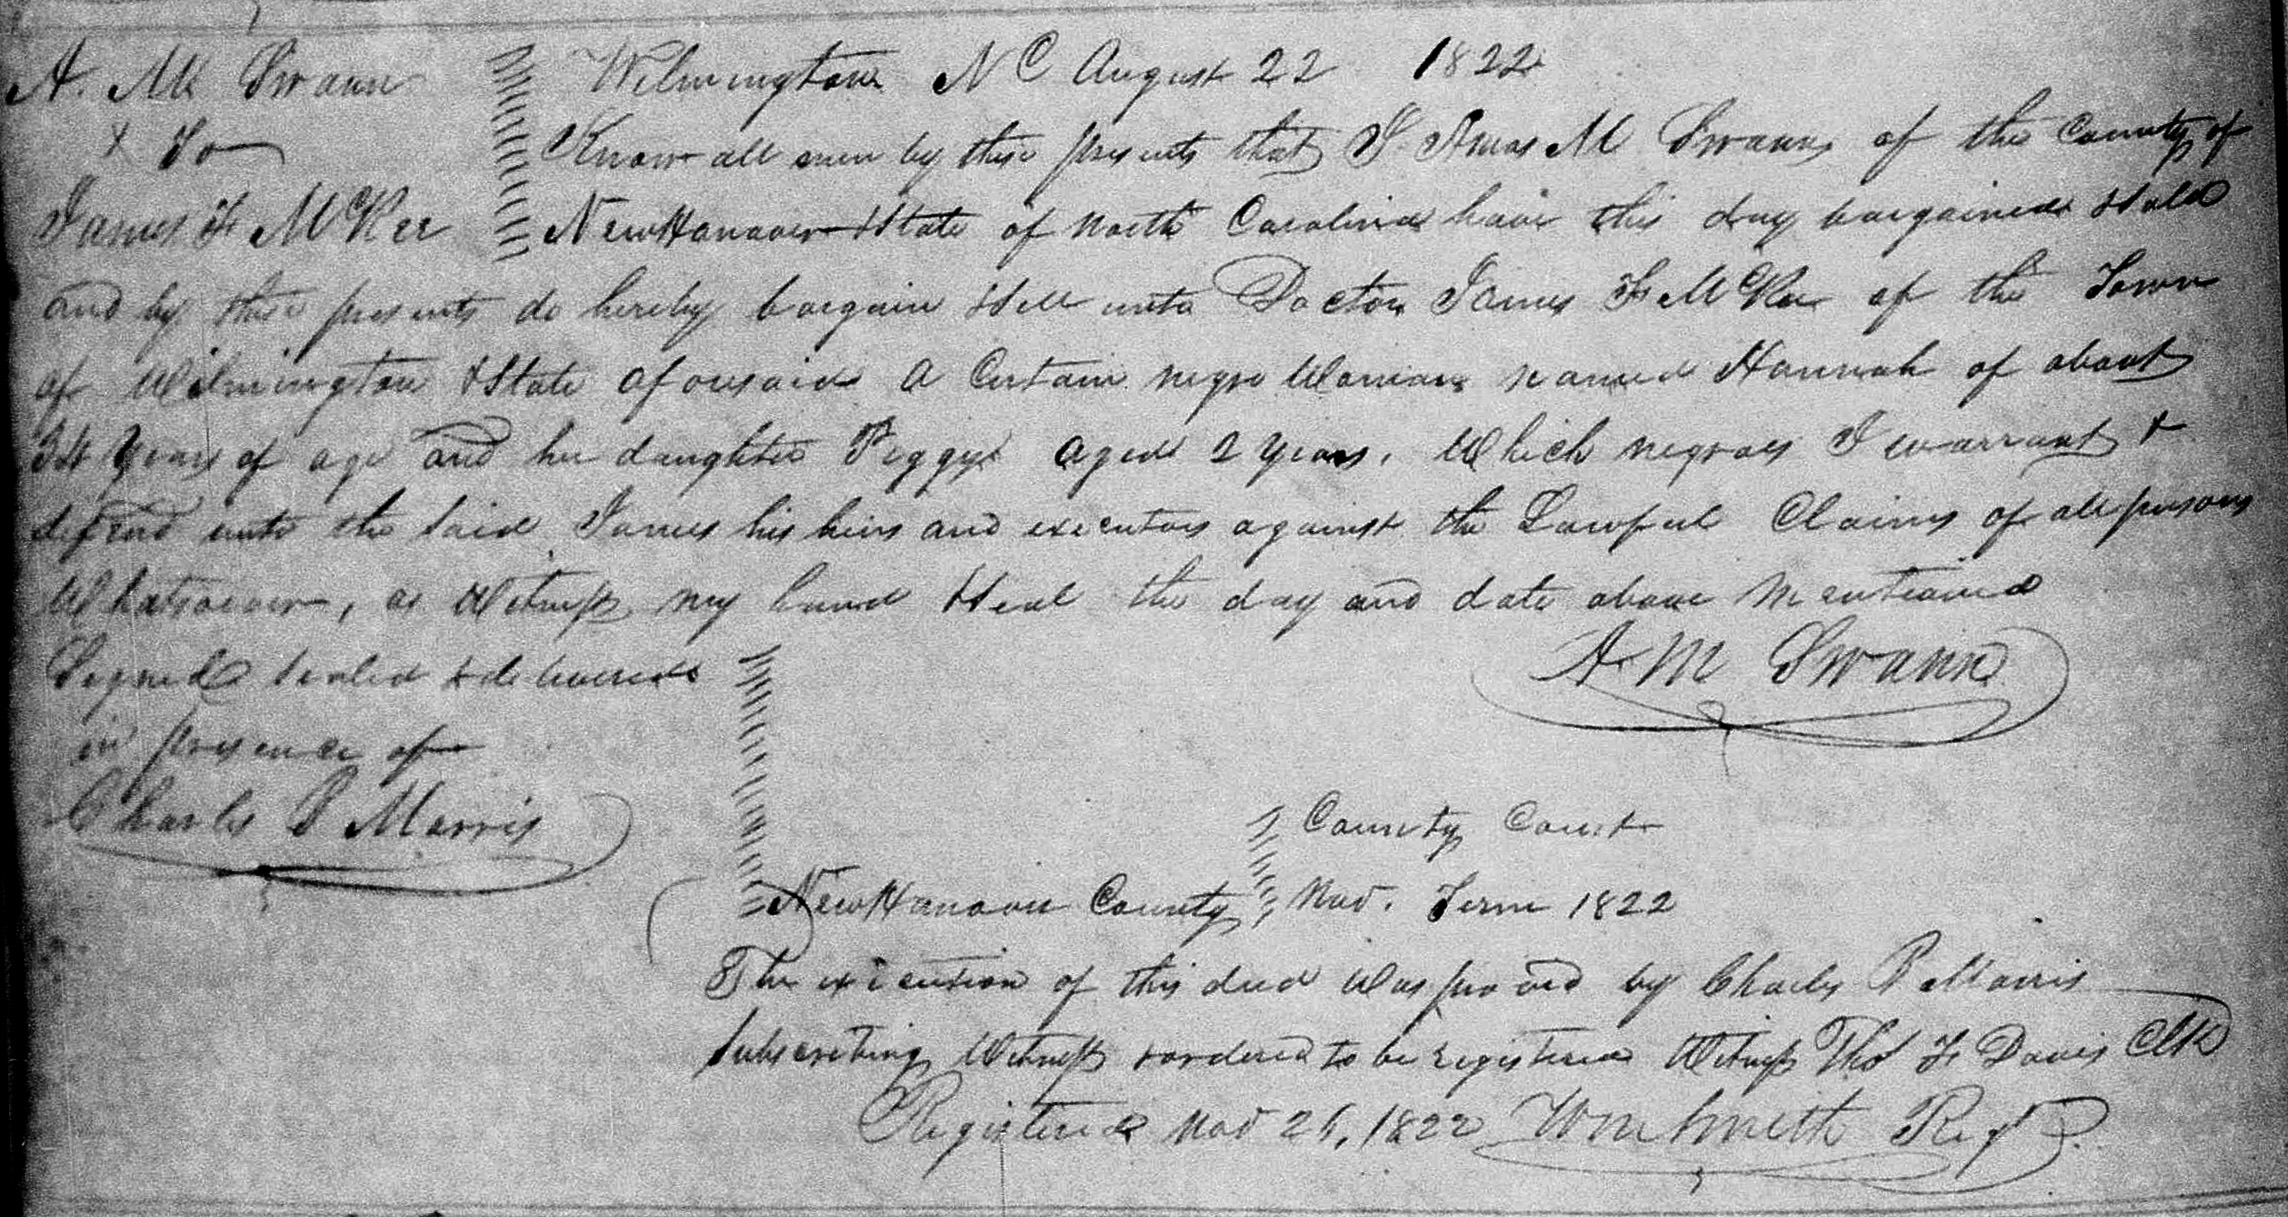 A. MK Swann
Wilmington NC August 22 1822
x To
Know all men by these presents that I Amos M Swann of the County of
James F McRee
New Hanover & State of North Carolina have this day bargained & sold
and by these presents do hereby bargain & sell unto Doctor James F McRee of the Town
of Wilmington & State aforesaid a Certain negro Woman named Hannah of about
Years of age and her daughter Peggy aged 2 years. Which negroes I warrant &
defend unto the said James his heirs and executors against the Lawful Claims of all persons
Whatsoever, as Witness my hand & seal the day and date above mentioned
A M Swann
Signed sealed & delivered
in presence of
Charles P Morris
County Court
New Hanover County Nov. Term 1822
The execution of this deed was proved by Charles P Morris
subscribing Witness & ordered to be registered Witness Thos F Davis Clk
Registered Nov 1822 Wm Smith Reg